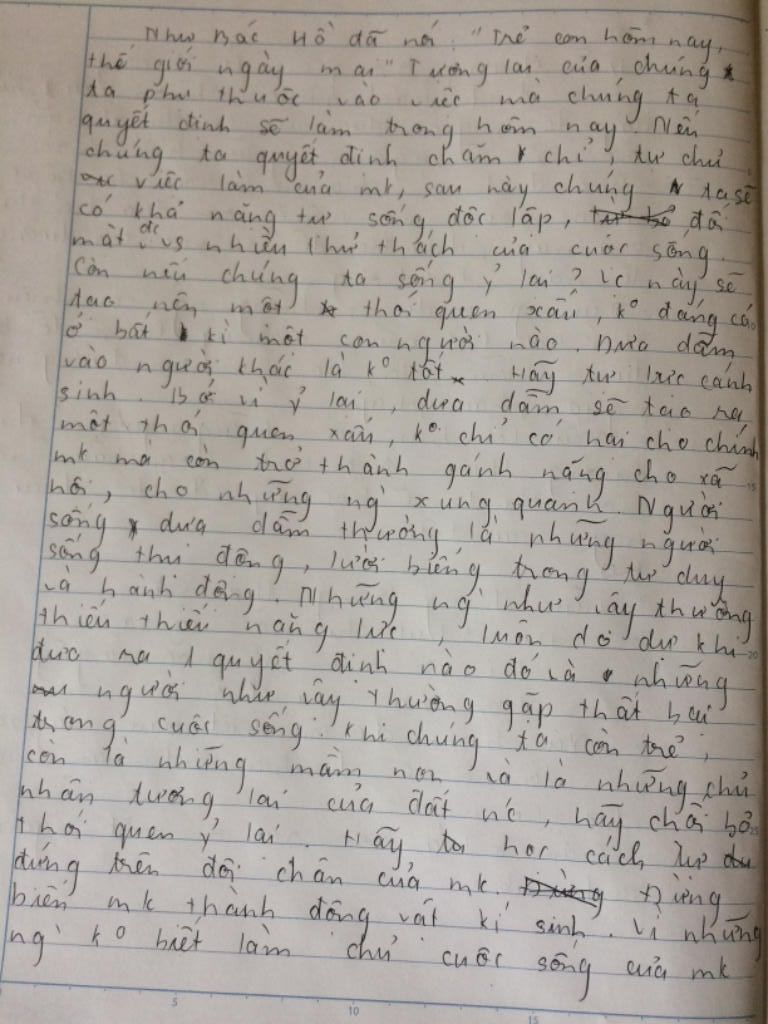 Như Bác Hồ đã nói "Trẻ con hôm nay,
thế giới ngày mai" Tương lai của chúng
ta phụ thuộc vào việc mà chúng ta
quyết định sẽ làm trong hôm nay. Nếu
chúng ta quyết định chăm chỉ, tự chủ
việc làm của mk, sau này chúng ta sẽ
có khả năng tự sống độc lập, đối
mặt đc vs nhiều thử thách của cuộc sống.
Còn nếu chúng ta sống ỷ lại? Vc này sẽ
tạo nên một thói quen xấu, k° đáng có
ở bất kì một con người nào. Dựa dẫm
vào người khác là k° tốt. Hãy tự lực cánh
sinh. Bởi vì ỷ lại, dựa dẫm sẽ tạo ra
một thói quen xấu, k° chỉ có hại cho chính
mk mà còn trở thành gánh nặng cho xã
hội, cho những ng` xung quanh. Người
sống dựa dẫm thường là những người
sống thụ động, lười biếng trong tư duy
và hành động. Những ng` như vậy thường
thiếu thiếu năng lực, luôn do dự khi
đưa ra 1 quyết định nào đó và những
người như vậy thường gặp thất bại
trong cuộc sống. Khi chúng ta còn trẻ,
còn là những mầm non và là những chủ
nhân tương lai của đất nc, hãy chối bỏ
thói quen ỷ lại. Hãy học cách tự
đứng trên đôi chân của mk. Đừng
biến mk thành động vật kí sinh. Vì những
ng` k° biết làm chủ cuộc sống của mk
5 10 15
15
20
25